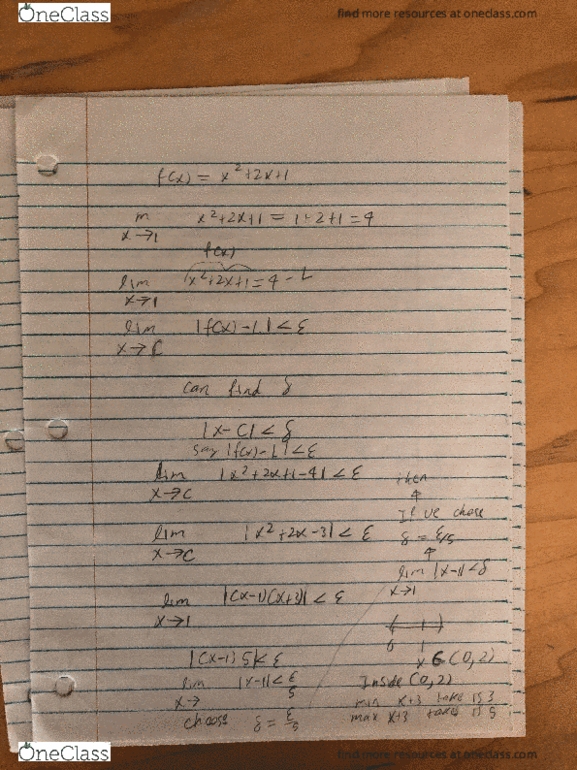 OneClass
find more resources at oneclass.com
f(x) = x²+2x+1
m x²+2x+1 = 1+2+1 = 4
x→1
f(x)
lim x²+2x+1 = 4 - L
x→1
lim |f(x)-L| < ε
x→C
can find δ
|x-C| < δ
say |f(x)-L| < ε
lim |x²+2x+1-4| < ε
x→C
lim |x²+2x-3| < ε
x→C
lim |(x-1)(x+3)| < ε
x→1
|(x-1)5| < ε
lim |x-1| < ε/5
x→
choose δ = ε/5
then
↑
If we chose
δ = ε/5
↑
lim |x-1| < δ
x→1
0 1
x ∈ (0,2)
Inside (0,2)
min x+3 takes is 3
max x+3 takes is 5
OneClass
find more resources at oneclass.com